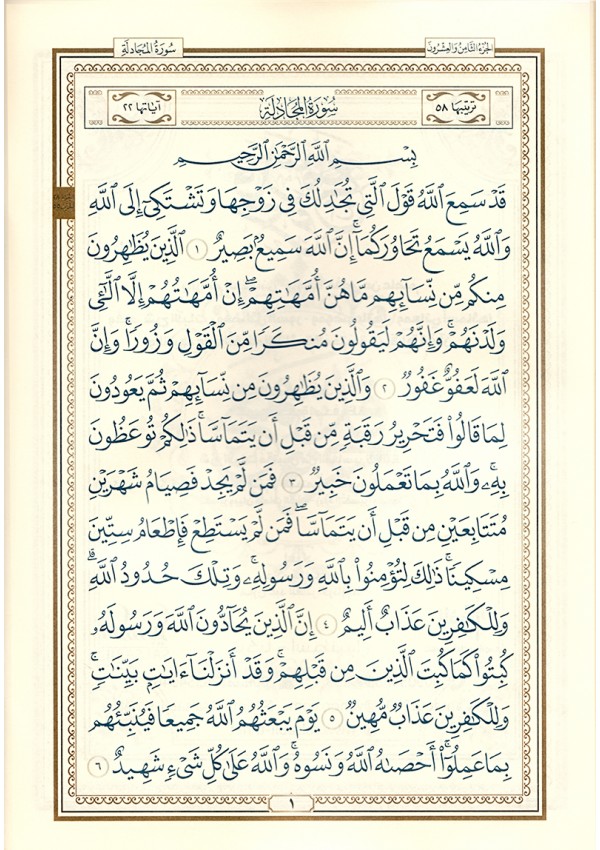 الجزء الثامن والعشرون
سورة المجادلة
ترتيبها ٥٨
سورة المجادلة
آياتها ٢٢
بِسْمِ ٱللَّهِ ٱلرَّحْمَٰنِ ٱلرَّحِيمِ
قَدْ سَمِعَ ٱللَّهُ قَوْلَ ٱلَّتِي تُجَٰدِلُكَ فِي زَوْجِهَا وَتَشْتَكِيٓ إِلَى ٱللَّهِ
وَٱللَّهُ يَسْمَعُ تَحَاوُرَكُمَآۚ إِنَّ ٱللَّهَ سَمِيعُۢ بَصِيرٌ ١ ٱلَّذِينَ يُظَٰهِرُونَ
مِنكُم مِّن نِّسَآئِهِم مَّا هُنَّ أُمَّهَٰتِهِمْۖ إِنْ أُمَّهَٰتُهُمْ إِلَّا ٱلَّٰٓـِٔي
وَلَدْنَهُمْۚ وَإِنَّهُمْ لَيَقُولُونَ مُنكَرًا مِّنَ ٱلْقَوْلِ وَزُورًاۚ وَإِنَّ
ٱللَّهَ لَعَفُوٌّ غَفُورٌ ٢ وَٱلَّذِينَ يُظَٰهِرُونَ مِن نِّسَآئِهِمْ ثُمَّ يَعُودُونَ
لِمَا قَالُوا۟ فَتَحْرِيرُ رَقَبَةٍ مِّن قَبْلِ أَن يَتَمَآسَّاۚ ذَٰلِكُمْ تُوعَظُونَ
بِهِۦۚ وَٱللَّهُ بِمَا تَعْمَلُونَ خَبِيرٌ ٣ فَمَن لَّمْ يَجِدْ فَصِيَامُ شَهْرَيْنِ
مُتَتَابِعَيْنِ مِن قَبْلِ أَن يَتَمَآسَّاۖ فَمَن لَّمْ يَسْتَطِعْ فَإِطْعَامُ سِتِّينَ
مِسْكِينًاۚ ذَٰلِكَ لِتُؤْمِنُوا۟ بِٱللَّهِ وَرَسُولِهِۦۚ وَتِلْكَ حُدُودُ ٱللَّهِۗ
وَلِلْكَٰفِرِينَ عَذَابٌ أَلِيمٌ ٤ إِنَّ ٱلَّذِينَ يُحَآدُّونَ ٱللَّهَ وَرَسُولَهُۥ
كُبِتُوا۟ كَمَا كُبِتَ ٱلَّذِينَ مِن قَبْلِهِمْۚ وَقَدْ أَنزَلْنَآ ءَايَٰتٍۭ بَيِّنَٰتٍۚ
وَلِلْكَٰفِرِينَ عَذَابٌ مُّهِينٌ ٥ يَوْمَ يَبْعَثُهُمُ ٱللَّهُ جَمِيعًا فَيُنَبِّئُهُم
بِمَا عَمِلُوٓا۟ۚ أَحْصَىٰهُ ٱللَّهُ وَنَسُوهُۚ وَٱللَّهُ عَلَىٰ كُلِّ شَيْءٍ شَهِيدٌ ٦
١